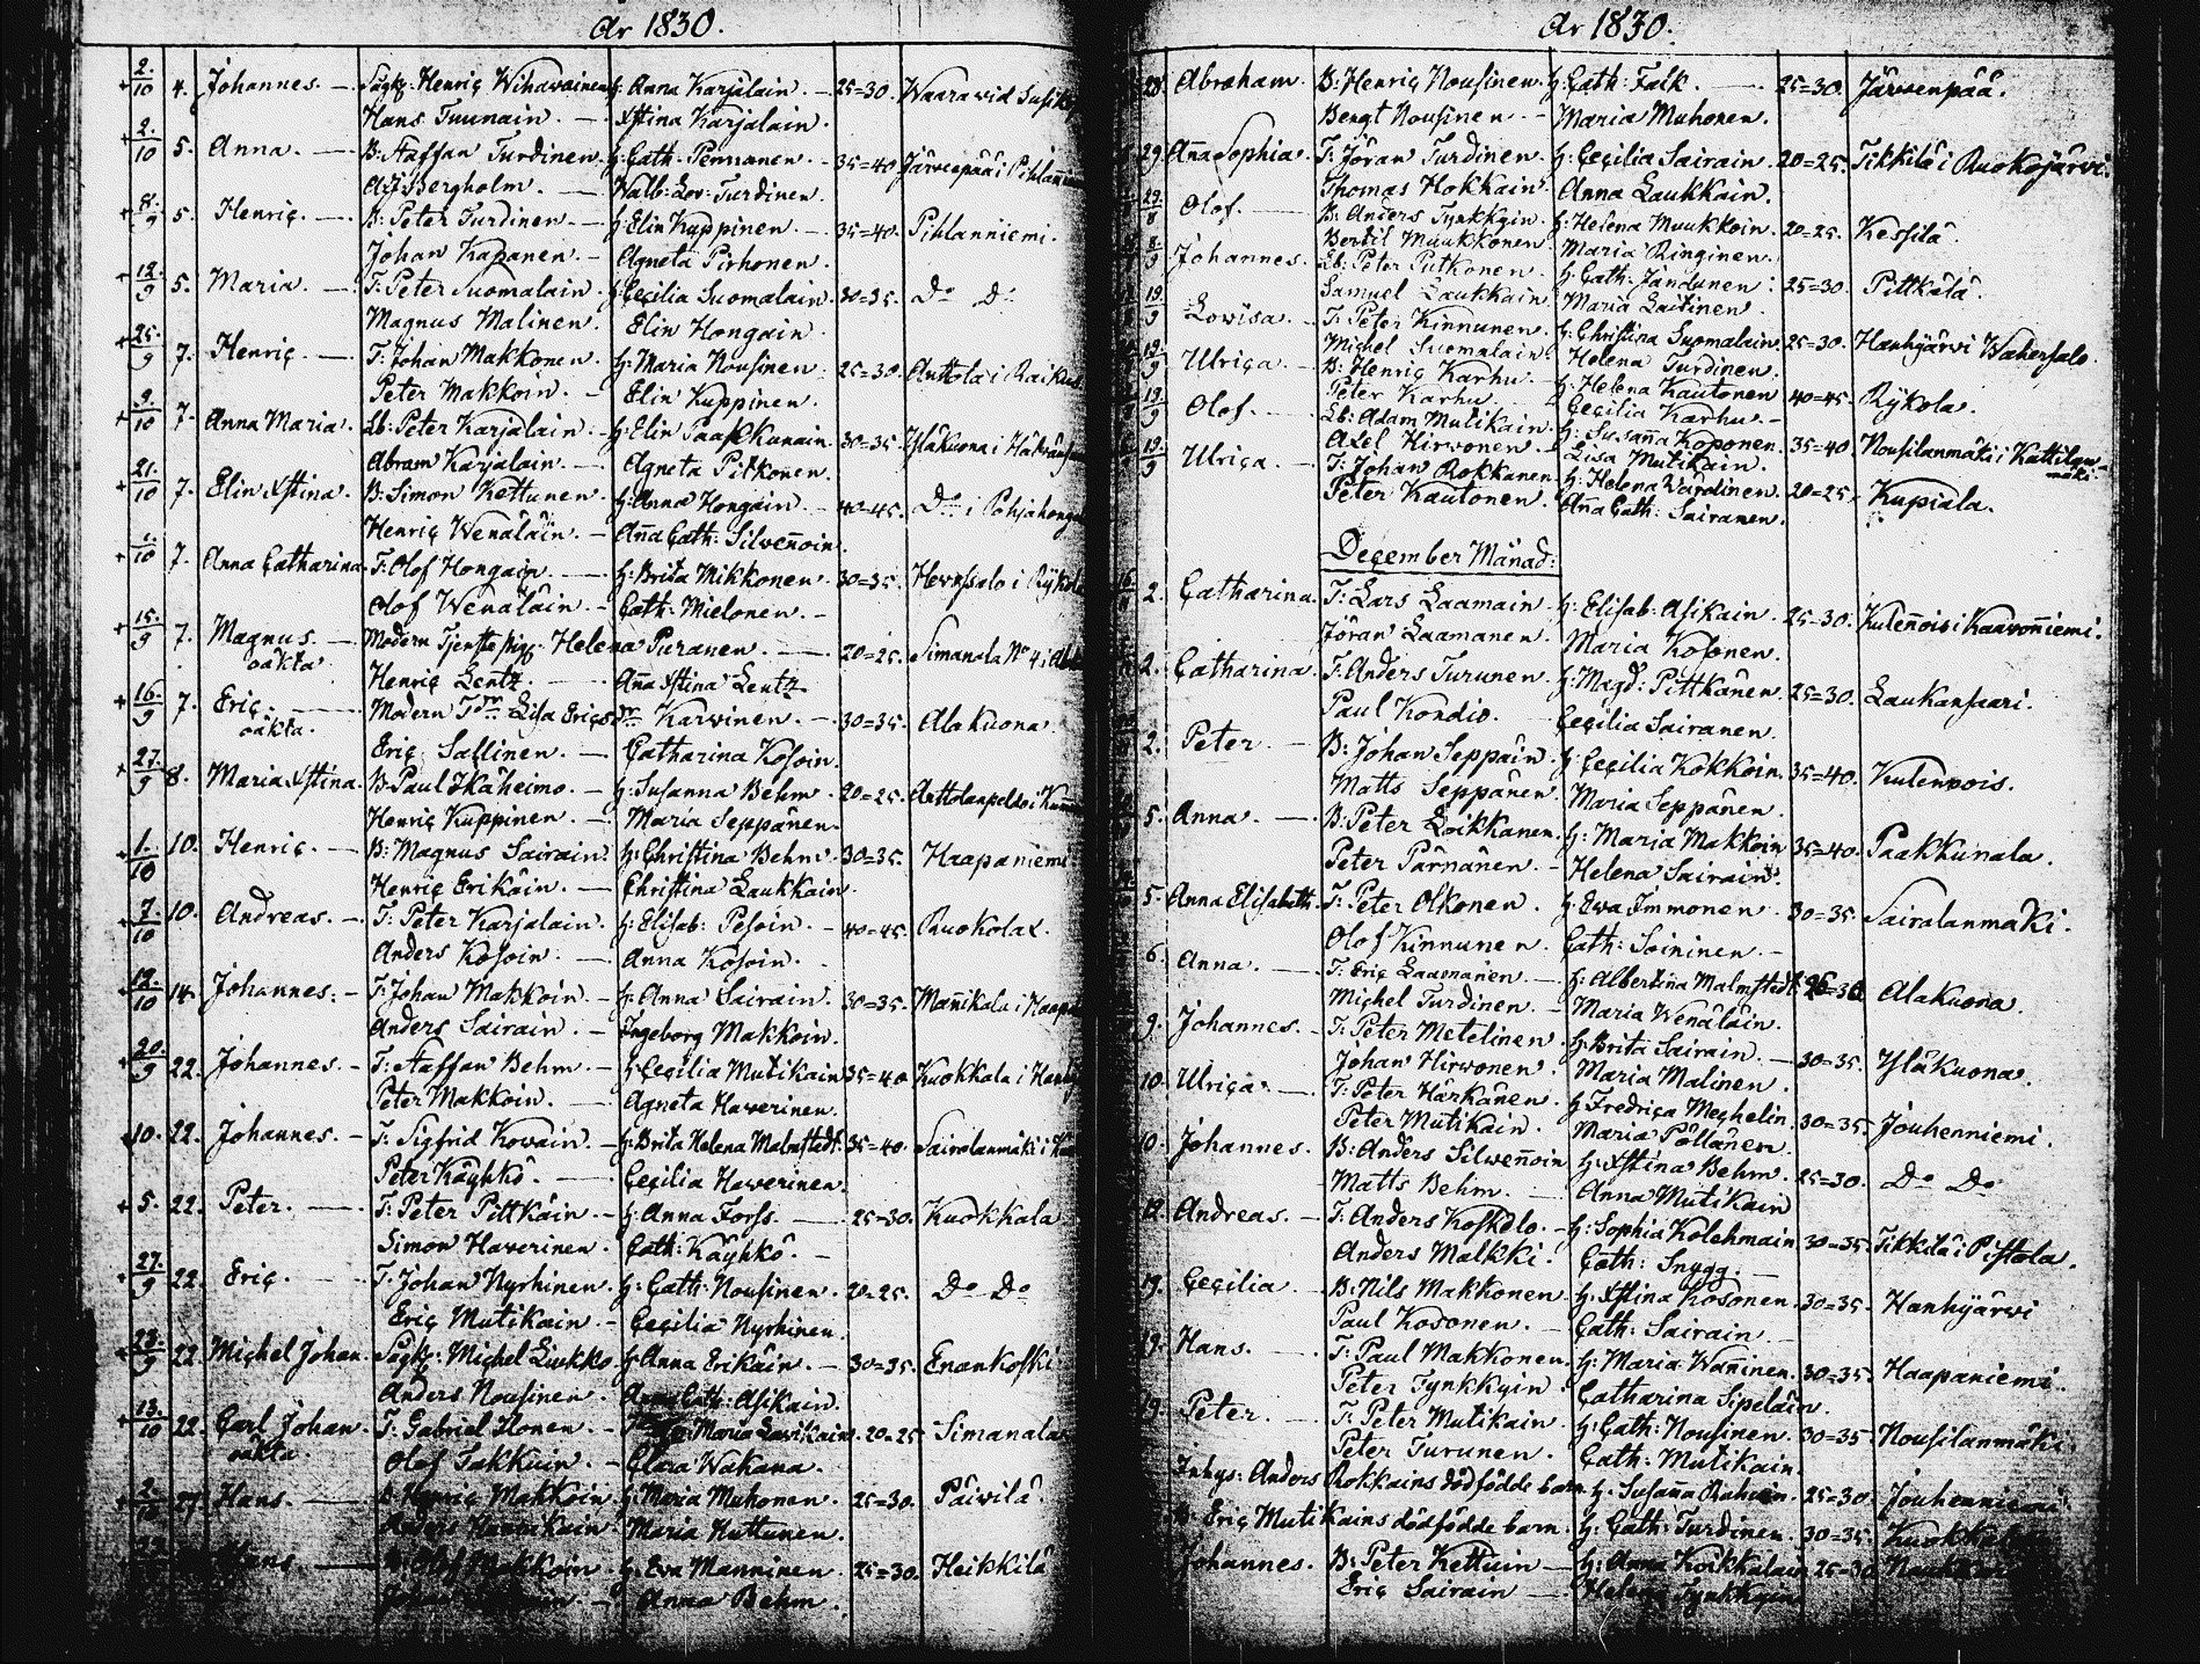 År 1830.
2/10 4. Johannes. — Sågk: Henriç Wihawainen H: Anna Karjalain. — 25=30. Waara vid
Hans Tuunain. — Xstina Karjalain.
2/10 5. Anna. — B: Staffan Turdinen. H: Cath: Pennanen. — 35=40. Järvenpää i
Bergholm. — Walb: Lov: Turdinen.
8/9 5. Henriç. — B: Peter Turdinen — H: Elin Kuppinen. — 35=40. Pihlanniemi.
Johan Kapanen. — Agneta Pirhonen.
12/9 5. Maria. — T: Peter Suomalain. H: Ceçilia Suomalain. 30=35. Do Do
Magnus Malinen. Elin Hongain.
25/9 7. Henriç. — T: Johan Makkonen. H: Maria Nousinen. 25=30. Anttola i
Peter Makkoin. — Elin Kuppinen.
9/10 7. Anna Maria. Lb: Peter Karjalain. — H: Elin Paakkunain. 30=35. Yläkuona i
Abram Karjalain. — Agneta Pitkonen.
21/10 7. Elin Xstina. B: Simon Kettunen. H: Anna Hongain. — 40=45. Do i
Henriç Wenäläin. — Aña Cath: Silweñoin.
1/10 7. Anna Catharina. T: Olof Hongain. — H: Brita Mikkonen. 30=35. i
Olof Wenäläin. — Cath: Mielonen. —
15/9 7. Magnus. — Modern Tjenste pig: Helena Puranen. — 20=25. Simanala No 4 i
oäkta.
Henriç Lentz. — Aña Xstina Lentz.
16/9 7. Eriç. — Modern Tdr Lisa Eriçsdr Karvinen. — 30=35. Alakuona.
oäkta.
Eriç Sallinen. — Catharina Kosoin.
27/9 8. Maria Xstina. B: Paul Ikäheimo. — H: Susanna Behm. 20=25. Anttolanpelto i
Henriç Kuppinen. — Maria Seppänen.
1/10 10. Henriç. — B: Magnus Sairain. H: Christina Behm. 30=35. Haapaniemi
Henriç Erikäin. — Christina Laukkain.
7/10 10. Andreas. — T: Peter Karjalain. H: Elisab: Pesoin. — 40=45. Ruokolax.
Anders Kosoin. — Anna Kosoin.
12/10 14. Johannes. — T: Johan Makkoin. — H: Anna Sairain. 30=35. Mañikala i
Anders Sairain. — Ingeborg Makkoin.
20/9 22. Johannes. — T: Staffan Behm. — H: Ceçilia Mutikain 35=40 Kuokkala i
Peter Makkoin. — Agneta Haverinen.
10. 22. Johannes. — T: Sigfrid Kowain. — H: Brita Helena Malmstedt. 35=40. Sairalanmäki i
Peter Käyhkö. — Ceçilia Haverinen.
5. 22. Peter. — T: Peter Pittkäin. — H: Anna Forss. — 25=30. Kuokkala
Simon Haverinen. Cath: Käyhkö. —
27/9 22. Eriç. — T: Johan Nyrhinen. H: Cath: Nousinen. 20=25. Do Do
Eriç Mutikain. — Ceçilia Nyrhinen.
23/9 22. Miçhel Johan. Sågk: Miçhel Liukko. H: Anna Erikäin. — 30=35. Enankoski
Anders Nousinen. Cath: Asikain.
13/10 22. Carl Johan. T: Gabriel Ilonen. — Maria 20=25 Simanala
oäkta.
Olof Takkuin. — Clara Wakana.
2/10 27. Hans. — Makkoin. H: Maria Muhonen. 25=30. Päivilä.
Anders Maria Huttunen.
Hans — Olof Makkoin. H: Eva Manninen. 25=30. Heikkilä
Anna Behm.
År 1830.
28. Abraham. B: Henriç Nousinen. H: Cath: Falk. — 25=30. Järvenpää.
Bengt Nousinen. — Maria Muhonen.
29. Aña Sophia. T: Jöran Turdinen. H: Ceçilia Sairain. 20=25. Tikkilä i Ruokojärvi.
Thomas Hokkain. Anna Laukkain.
29/8 Olof. — B: Anders Tynkkyin. H: Helena Muukkoin. 20=25. Kessilä.
Bertil Muukkonen. Maria Ringinen.
8/9 Johannes. Lb: Peter Putkonen. H: Cath: Jandunen. 25=30. Pittkälä.
Samuel Laukkain. Maria Laitinen.
19/9 Lowisa. — T: Peter Kinnunen. H: Christina Suomalain. 25=30. Hanhijärvi
Miçhel Suomalain. Helena Turdinen.
19/9 Ulriça. — B: Henriç Karhu. H: Helena Kautonen 40=45. Rÿkola.
Peter Karhu. Ceçilia Karhu. —
19/9 Olof. — Lb: Adam Mutikain. H: Susaña Koponen. 35=40. Nousilanmäki i Kattilan-
mäki.
Axel Hirvonen. Lisa Mutikain.
19/9 Ulriça. — T: Johan Rokkanen. H: Helena Wardinen. 20=25. Kupiala.
Peter Kautonen. Aña Cath: Sairanen.
Deçember Månad:
2. Catharina. T: Lars Laamain. H: Elisab: Asikain. 25=30. Kuleñois i Kaavoñiemi.
Jöran Laamanen. Maria Kosonen.
2. Catharina. T: Anders Turunen. H: Magd: Pittkänen. 25=30. Laukansaari.
Paul Kondio. Ceçilia Sairanen.
2. Peter. — B: Johan Seppäin. H: Ceçilia Kokkoin. 35=40. Kulennois.
Matts Seppänen. Maria Seppänen.
5. Anna. — B: Peter Loikkanen. H: Maria Makkoin 35=40. Paakkunala.
Peter Pärnänen. — Helena Sairain.
5. Anna Elisabeth. T: Peter Olkonen. H: Ewa Immonen. 30=35. Sairalanmäki.
Olof Kinnunen. Cath: Soininen. —
6. Anna. — T: Eriç Laamanen. — H: Albertina Malmstedt. Alakuona.
Miçhel Turdinen. — Maria Wenäläin.
9. Johannes. — T: Peter Metelinen. H: Brita Sairain. — 30=35. Yläkuona.
Johan Hirvonen. Maria Malinen.
10. Ulriça. — T: Peter Härkänen. H: Fredriça Meçhelin. 30=35. Jouhenniemi.
Peter Mutikain. Maria Pöllänen.
10. Johannes. B: Anders Silweñoin H: Xstina Behm. 25=30. Do Do
Matts Behm. — Anna Mutikain
12. Andreas. — T: Anders Koskolo. — H: Sophia Kolehmain 30=35. Tikkilä i Pistola.
Anders Malkki. Cath: Snygg. —
19. Ceçilia — B: Nils Makkonen. H: Xstina Kosonen. 30=35. Hanhijärvi
Paul Kosonen. — Cath: Sairain. —
19. Hans. — T: Paul Makkonen. H: Maria Wañinen. 30=35. Haapaniemi.
Peter Tynkkyin. Catharina Sipeläin.
19. Peter. — T: Peter Mutikain. H: Cath: Nousinen. 30=35. Nousilanmäki.
Peter Turunen. Cath: Mutikain.
Inhys: Anders Rokkains dödfödde barn. H: Susaña 25=30. Jouhenniemi.
B: Eriç Mutikains dödfödde barn. H: Cath: Turdinen. 30=35.
Johannes. B: Peter Kettuin — H: Anna Koikkalain 25=30
Eriç Sairain — Helena Tynkkyin